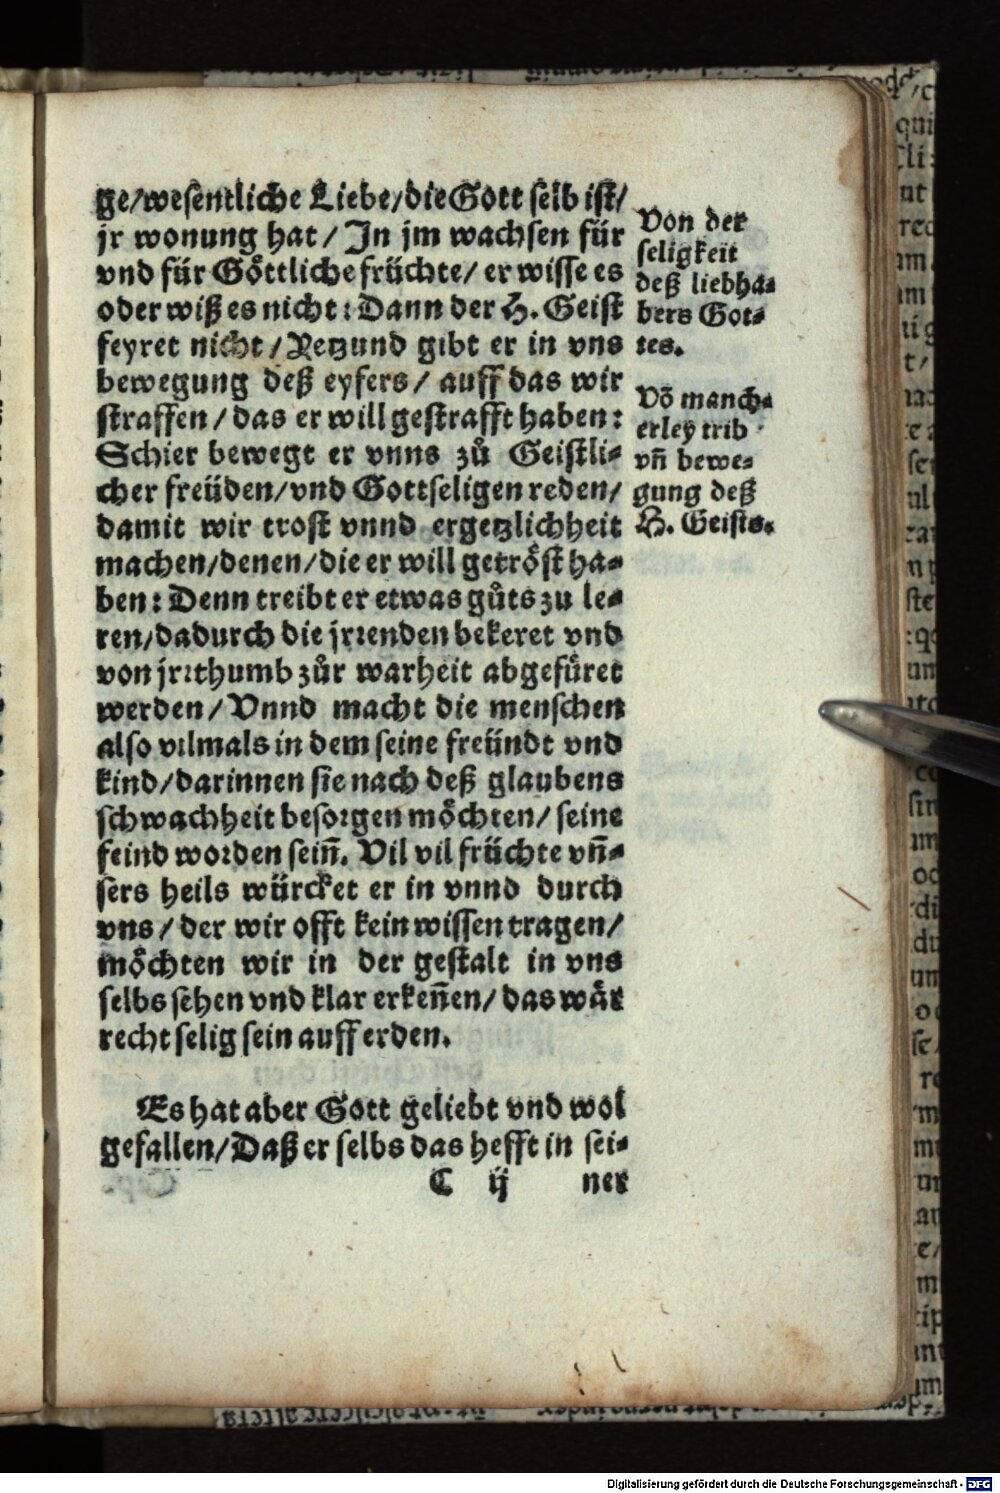 ge/wesentliche Liebe/die Gott selb ist/
jr wonung hat/ In jm wachsen für
vnd für Göttliche früchte/ er wisse es
oder wiß es nicht: Dann der H. Geist
feyret nicht/ Yetzund gibt er in vns
bewegung deß eyfers/ auff das wir
straffen/ das er will gestrafft haben:
Schier bewegt er vnns zů Geistli-
cher freüden/vnd Gottseligen reden/
damit wir trost vnnd ergetzlichheit
machen/denen/die er will getröst ha-
ben: Denn treibt er etwas gůts zu le-
ren/dadurch die jrrenden bekeret vnd
von jrrthumb zůr warheit abgefüret
werden/ Vnnd macht die menschen
also vilmals in dem seine freündt vnd
kind/darinnen sie nach deß glaubens
schwachheit besorgen möchten/ seine
feind worden sein̄. Vil vil früchte vn̄-
sers heils würcket er in vnnd durch
vns/ der wir offt kein wissen tragen/
möchten wir in der gestalt in vns
selbs sehen vnd klar erken̄en/ das wär
recht selig sein auff erden.
Es hat aber Gott geliebt vnd wol
gefallen/Daß er selbs das hefft in sei-
C ij ner
Von der
seligkeit
deß liebha-
bers Got-
tes.
Võ manch-
erley trib
vn̄ bewe-
gung deß
H. Geists.
Digitalisierung gefördert durch die Deutsche Forschungsgemeinschaft - DFG